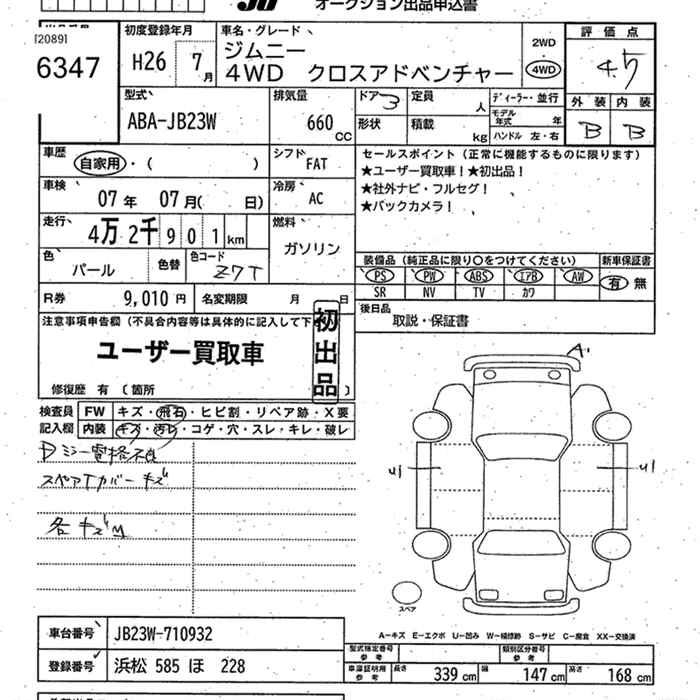 オークション出品申込書
20891
6347
初度登録年月
H26 7月
車名・グレード
ジムニー
4WD クロスアドベンチャー
2WD
4WD
評価点
4.5
外装 内装
B B
型式
ABA-JB23W
排気量
660 CC
ドア 3
定員 人
ディーラー・並行
形状
積載 kg
モデル年式 年
ハンドル 左・右
車歴
自家用・( )
シフト
FAT
セールスポイント (正常に機能するものに限ります)
★ユーザー買取車!★初出品!
★社外ナビ・フルセグ!
★バックカメラ!
車検
07年 07月( 日)
冷房
AC
走行
4万2千901km
燃料
ガソリン
色
パール
色替
色コード
Z7T
装備品 (純正品に限り〇をつけてください)
新車保証書
PS PW ABS エアB AW
有 無
SR NV TV カワ
R券
9,010 円
名変期限 月 日
後日品
取説・保証書
注意事項申告欄 (不具合内容等は具体的に記入して下
初出品
ユーザー買取車
修復歴 有 (箇所 )
検査員記入欄
FW キズ・飛石・ヒビ割・リペア跡・X要
内装 キズ・汚レ・コゲ・穴・スレ・キレ・破レ
Dミラー電格不良
スペアTカバーキズ
各キズ
A'
U1 U1
スペア
A-キズ E-エクボ U-凹み W-補修跡 S-サビ C-腐食 XX-交換済
車台番号
JB23W-710932
型式指定番号 参考
類別区分番号 参考
登録番号
浜松 585 ほ 228
車庫証明用 参考
長さ 339 cm 幅 147 cm 高さ 168 cm